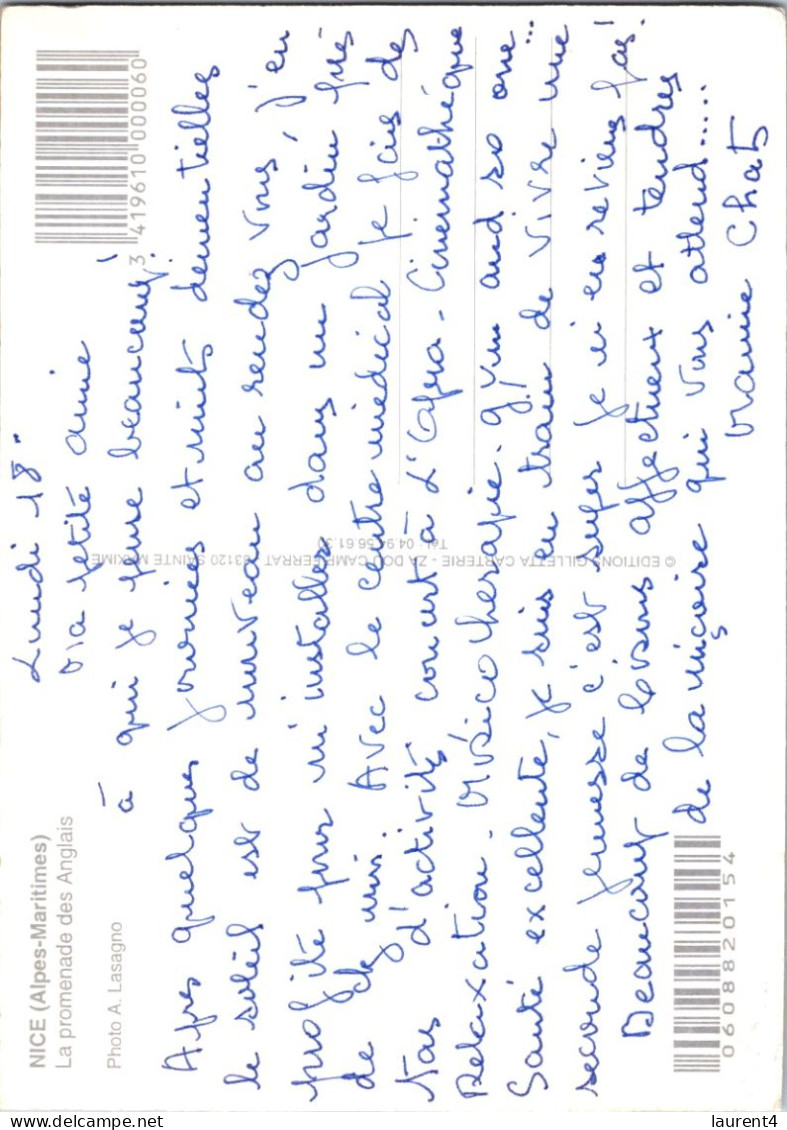 NICE (Alpes-Maritimes)
La promenade des Anglais
Photo A. Lasagno
3 419610 000060
Lundi 18
Ma petite amie
à qui je pense beaucoup!
Apres quelques journées et nuits dementielles
le soleil est de nouveau au rendez vous, j'en
profite pour m'installer dans un jardin près
de chez moi. Avec le centre médical je fais des
tas d'activités concert à L'Opera - Cinemathèque
Relaxation - Musicotherapie - gym and so one...
Santé excellente, je suis en train de vivre une
seconde jeunesse c'est super je n'en reviens pas!
Beaucoup de bisous affectueux et tendres
de la niçoise qui vous attend.....
Mamie Chat
© EDITIONS GILLETTA CARTERIE - ZA DU CAMP FERRAT 83120 SAINTE MAXIME
Tél. 04.94.56.61.30
0608820154
laurent4